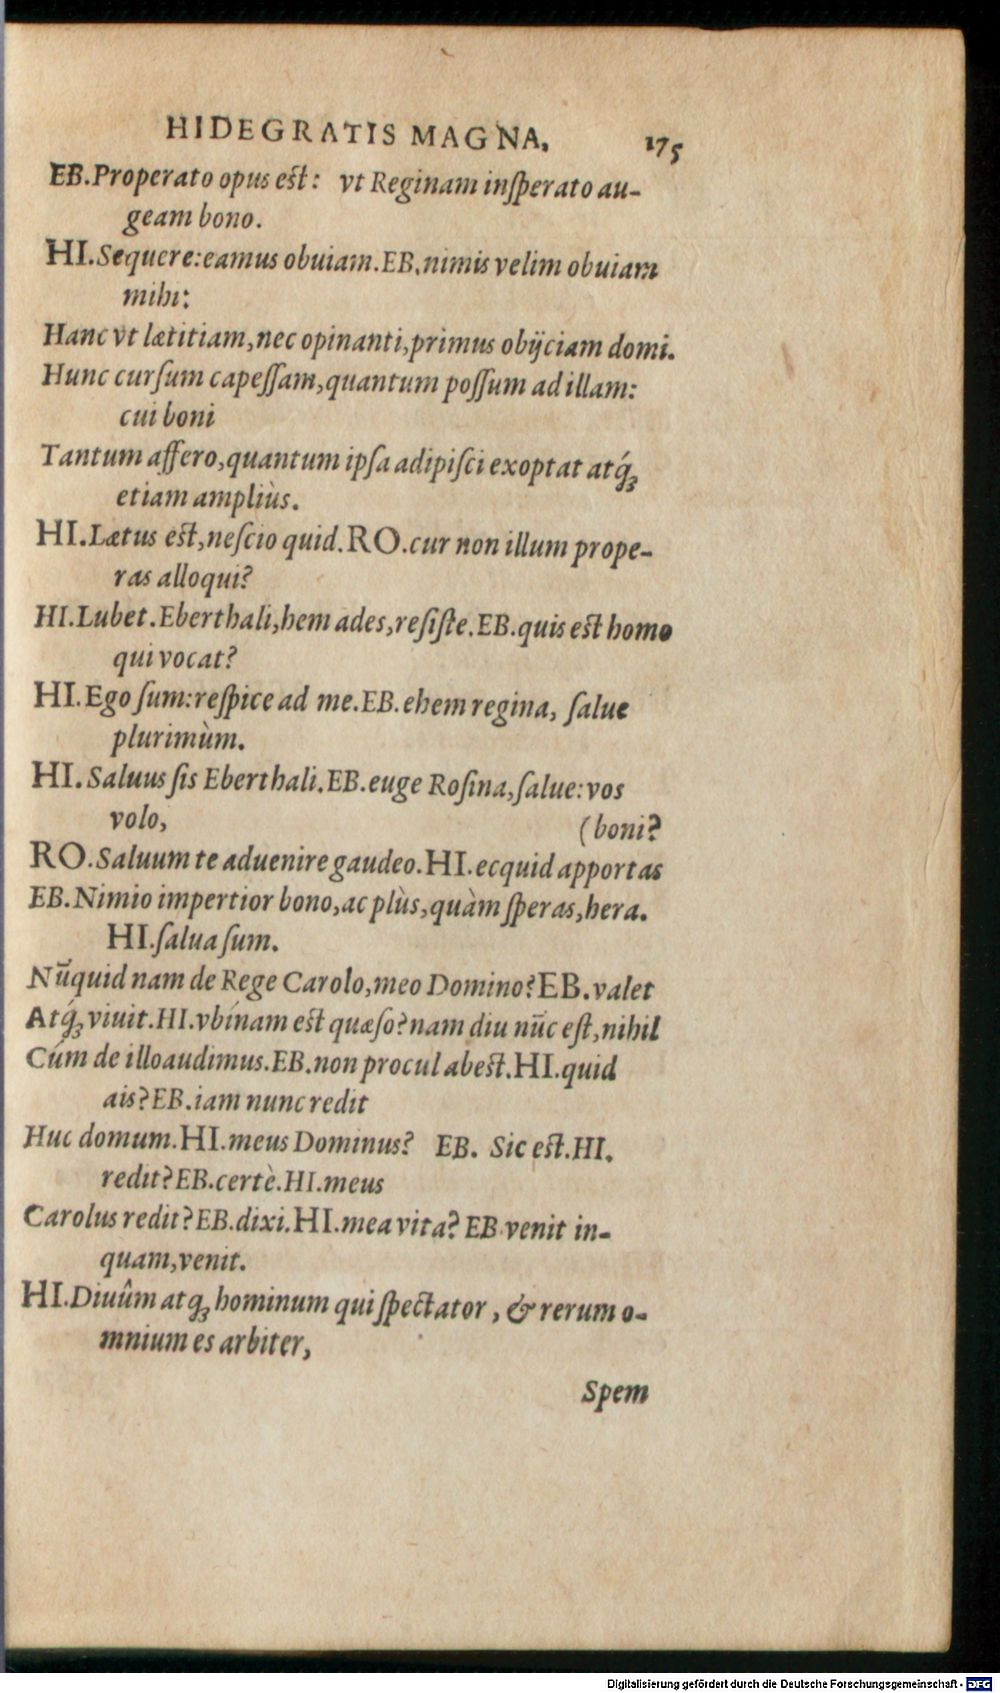 HIDEGRATIS MAGNA. 175
EB. Properato opus est: vt Reginam inſperato au-
geam bono.
HI. Sequere: eamus obuiam. EB. nimis velim obuiam
mihi:
Hanc vt lætitiam, nec opinanti, primus obijciam domi.
Hunc curſum capeſſam, quantum poſſum ad illam:
cui boni
Tantum affero, quantum ipſa adipiſci exoptat atq́ꝫ
etiam ampliùs.
HI. Lætus est, neſcio quid. RO. cur non illum prope-
ras alloqui?
HI. Lubet. Eberthali, hem ades, reſiſte. EB. quis est homo
qui vocat?
HI. Ego ſum: reſpice ad me. EB. ehem regina, ſalue
plurimùm.
HI. Saluus ſis Eberthali. EB. euge Roſina, ſalue: vos
volo, (boni?
RO. Saluum te aduenire gaudeo. HI. ecquid apportas
EB. Nimio impertior bono, ac plùs, quàm ſperas, hera.
HI. ſalua ſum.
Nūquid nam de Rege Carolo, meo Domino? EB. valet
Atq́ꝫ viuit. HI. vbínam est quæſo? nam diu nūc eſt, nihil
Cúm de illo audimus. EB. non procul abest. HI. quid
ais? EB. iam nunc redit
Huc domum. HI. meus Dominus? EB. Sic est. HI.
redit? EB. certè. HI. meus
Carolus redit? EB. dixi. HI. mea vita? EB. venit in-
quam, venit.
HI. Diuûm atqꝫ hominum qui ſpectator, & rerum o-
mnium es arbiter,
Spem
Digitalisierung gefördert durch die Deutsche Forschungsgemeinschaft - DFG